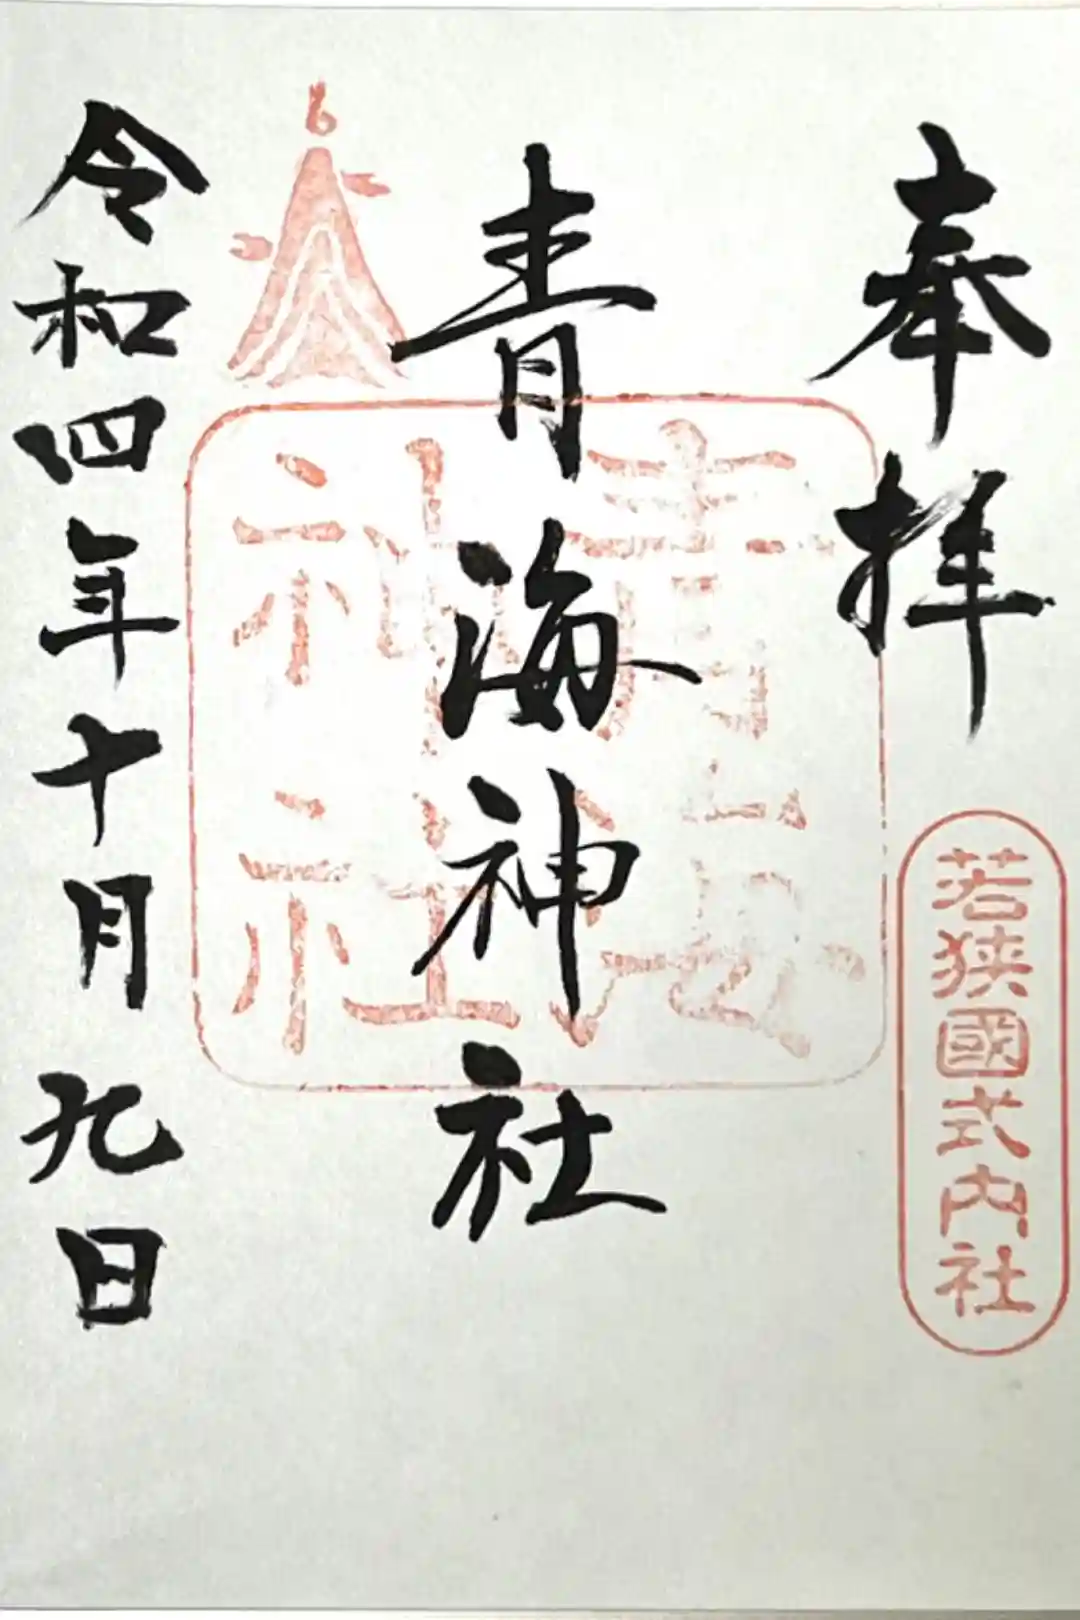 奉拝
若狭國式内社
青海神社
青海神社
令和四年十月九日